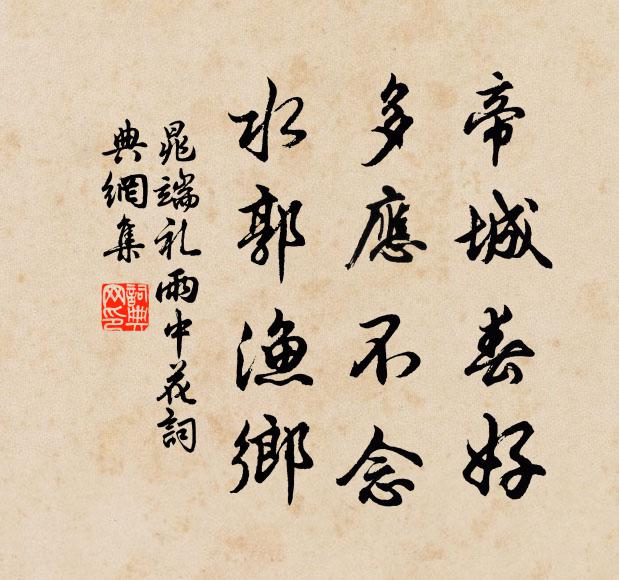 帝城春好
多應不念
水郭漁鄉
晁端礼雨中花詞
典網集
詞典網印